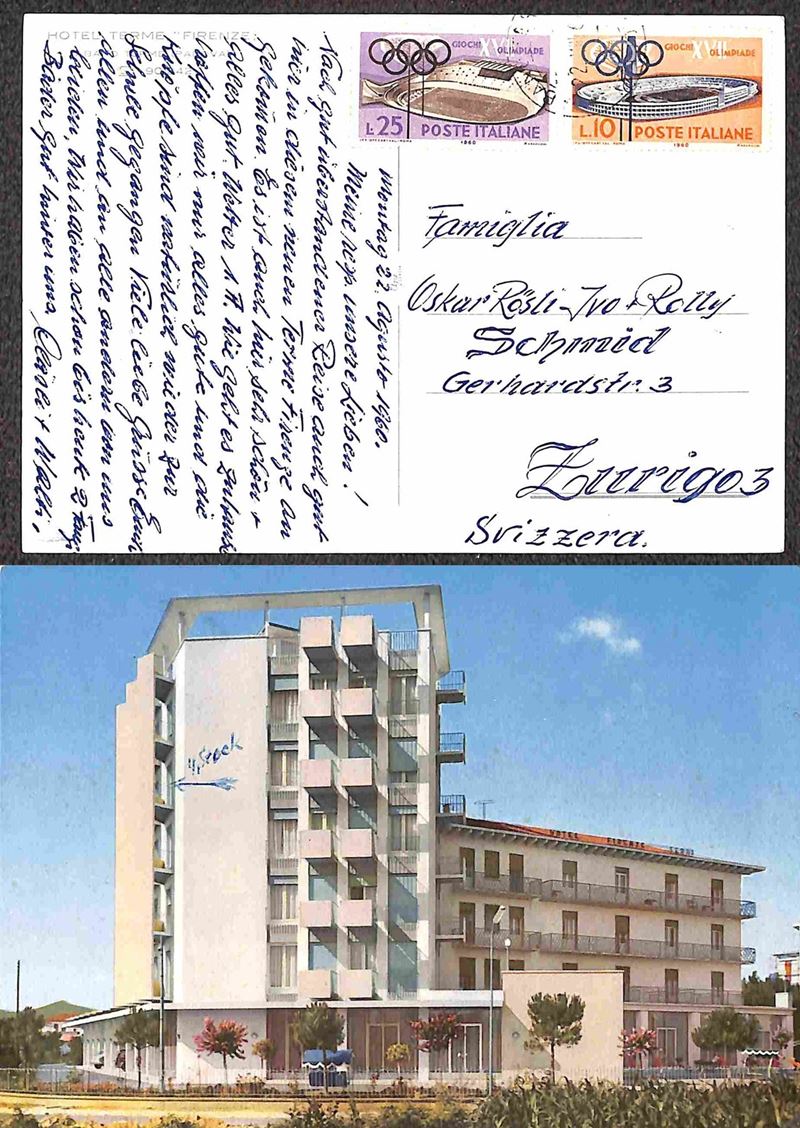 HOTEL TERME "FIRENZE"
GIOCHI XVII OLIMPIADE
L.25 POSTE ITALIANE
1960
GIOCHI XVII OLIMPIADE
L.10 POSTE ITALIANE
1960
Montag 22. Agusto 1960.
Meine resp unsere Lieben!
Nach gut überstandener Reise auch gut
hier in diesem neuen Terme Firenze an
gekomen. Es ist auch hier sehr schön +
alles gut. Wetter 1A. Wie geht es Zuhause
hoffen wir nur alles gute und die
Knöpfe sind natürlich wieder zur
Schule gegangen. Viele liebe Grüsse Euch
allen und an alle andern von uns
beiden, Wir haben schon bis heute 2 Tage
Bäder gut hinter uns, + Walti.
Famiglia
Oskar Rösli-Ivo + Rolly
Schmid
Gerhardstr. 3
Zurigo 3
Svizzera.
4. Stock
HOTEL FIRENZE TERME